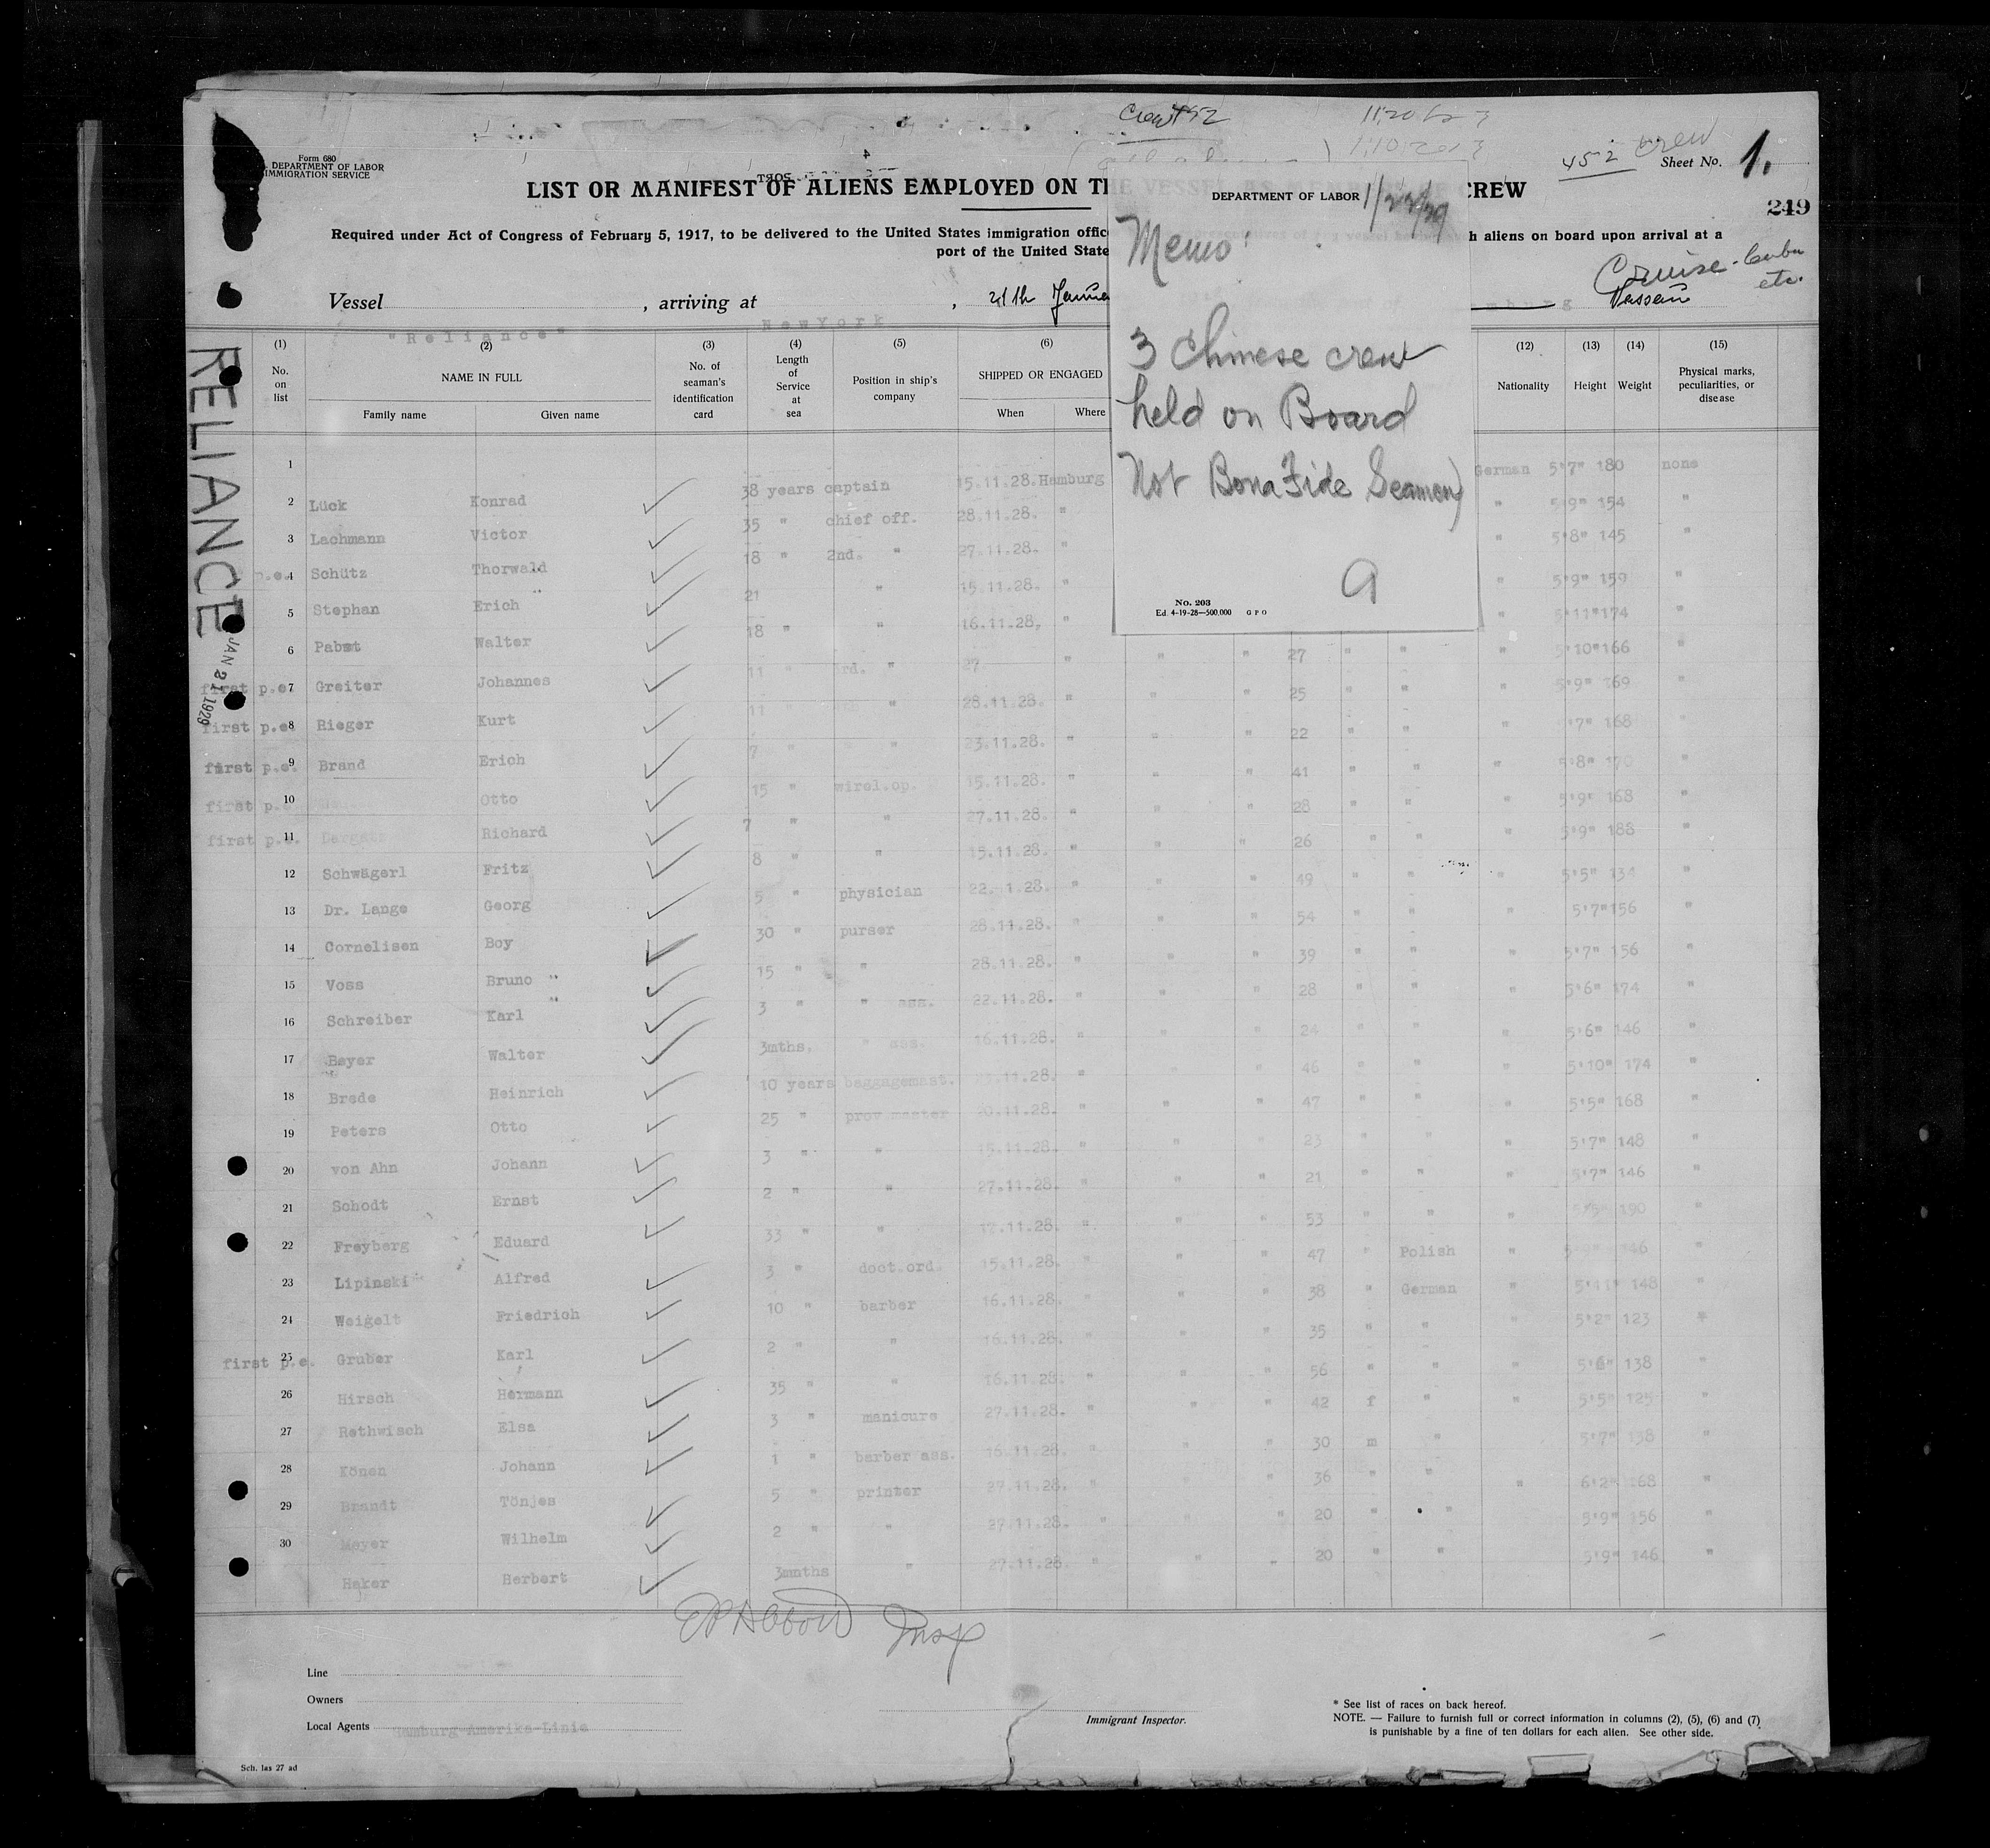 Crew 452
452 crew
Form 680
DEPARTMENT OF LABOR
IMMIGRATION SERVICE
Sheet No. 1.
LIST OR MANIFEST OF ALIENS EMPLOYED ON TH
CREW
249
Required under Act of Congress of February 5, 1917, to be delivered to the United States immigration offic
h aliens on board upon arrival at a
port of the United State
Cruise - Cuba
Nassau etc.
Vessel "Reliance", arriving at NewYork, 21th Janua
RELIANCE
JAN 21 1929
DEPARTMENT OF LABOR
Memo
3 Chinese crew
held on Board
Not Bona Fide Seamen
No. 203
Ed. 4-19-28—500,000 G P O
(1) No. on list
(2) NAME IN FULL
Family name Given name
(3) No. of seaman's identification card
(4) Length of Service at sea
(5) Position in ship's company
(6) SHIPPED OR ENGAGED
When Where
(12) Nationality
(13) Height
(14) Weight
(15) Physical marks, peculiarities, or disease
1 Lück Konrad 38 years captain 15.11.28. Hamburg German 5'7" 180 none
2 Lachmann Victor 35 " chief off. 28.11.28. " " 5'9" 154 "
3 Schütz Thorwald 18 " 2nd. " 27.11.28. " " 5'8" 145 "
p.e. 4 Stephan Erich 21 " 15.11.28. " " 5'9" 159 "
5 Pabst Walter 18 " " 16.11.28. " " 5'11" 174 "
6 Greiter Johannes 11 " 3rd. " 27. " " " 27 " " " 5'10" 166 "
first p.e. 7 Rieger Kurt 11 " " 28.11.28. " " " 25 " " " 5'9" 169 "
first p.e. 8 Brand Erich 7 " " 23.11.28. " " " 22 " " " 168 "
first p.e. 9 Otto 15 " wirel.op. 15.11.28. " " " 41 " " " 5'8" 170 "
first p.e. 10 Richard 7 " " 27.11.28. " " " 28 " " " 5'9" 168 "
first p.e. 11 Schwägerl Fritz 8 " " 15.11.28. " " " 26 " " " 5'9" 188 "
12 Dr. Lange Georg 5 " physician 22. 1.28. " " " 49 " " " 5'5" 134 "
13 Cornelisen Boy 30 " purser 28.11.28. " " " 54 " " " 5'7" 156 "
14 Voss Bruno 15 " " 28.11.28. " " " 39 " " " 5'7" 156 "
15 Schreiber Karl 3 " " ass. 22.11.28. " " " 28 " " " 5'6" 174 "
16 Beyer Walter 3mths. " ass. 16.11.28. " " " 24 " " " 5'6" 146 "
17 Brede Heinrich 10 years baggagemast. .11.28. " " 46 " " 5'10" 174 "
18 Peters Otto 25 " prov master 20.11.28. " " " 47 " " " 5'5" 168 "
19 von Ahn Johann 3 " " 15.11.28. " " " 23 " " " 5'7" 148 "
20 Schodt Ernst 2 " " 27.11.28. " " " 21 " " " 5'7" 146 "
21 Freyberg Eduard 33 " " 12.11.28. " " " 53 " " " 190 "
22 Lipinski Alfred 3 " doct.ord. 15.11.28. " " " 47 " Polish " 146 "
23 Weigelt Friedrich 10 " barber 16.11.28. " " " 38 " German " 5'11" 148 "
24 Gruber Karl 2 " " 16.11.28. " " " 35 " " 5'2" 123 "
first p.e. 25 Hirsch Hermann 35 " " 16.11.28. " " " 56 " " " 5'6" 138 "
26 Rethwisch Elsa 3 " manicure 27.11.28. " " " 42 f " " 5'5" 125 "
27 Könen Johann 1 " barber ass. 16.11.28. " " " 30 m " 5'7" 138 "
28 Brandt Tönjes 5 " printer 27.11.28. " " " 36 " " " 6'2" 168 "
29 Meyer Wilhelm 2 " " 27.11.28. " " " 20 " " 5'9" 156 "
30 Haker Herbert 3mnths " 27.11.28. " " " 20 " " 5'9" 146 "
Insp
Line
Owners
Local Agents Hamburg-Amerika-Linie
Immigrant Inspector.
* See list of races on back hereof.
NOTE. — Failure to furnish full or correct information in columns (2), (5), (6) and (7)
is punishable by a fine of ten dollars for each alien. See other side.
Sch. las 27 ad